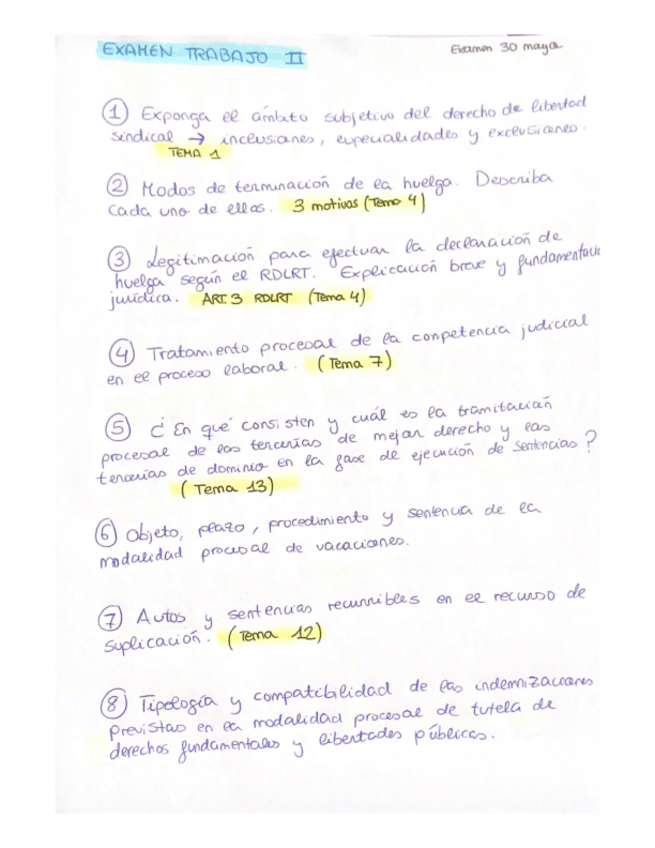 EXAMEN TRABAJO II
Examen 30 mayo
① Exponga el ámbito subjetivo del derecho de libertad
sindical → inclusiones, especialidades y exclusiones.
TEMA 1
② Modos de terminación de la huelga. Describa
cada uno de ellos. 3 motivos (Tema 4)
③ Legitimación para efectuar la declaración de
huelga según el RDLRT. Explicación breve y fundamentació
jurídica. ART. 3 RDLRT (Tema 4)
④ Tratamiento procesal de la competencia judicial
en el proceso laboral. (Tema 7)
⑤ ¿En qué consisten y cuál es la tramitación
procesal de las tercerías de mejor derecho y las
tercerías de dominio en la fase de ejecución de sentencias?
(Tema 13)
⑥ Objeto, plazo, procedimiento y sentencia de la
modalidad procesal de vacaciones.
⑦ Autos y sentencias recurribles en el recurso de
suplicación. (Tema 12)
⑧ Tipología y compatibilidad de las indemnizaciones
previstas en la modalidad procesal de tutela de
derechos fundamentales y libertades públicas.